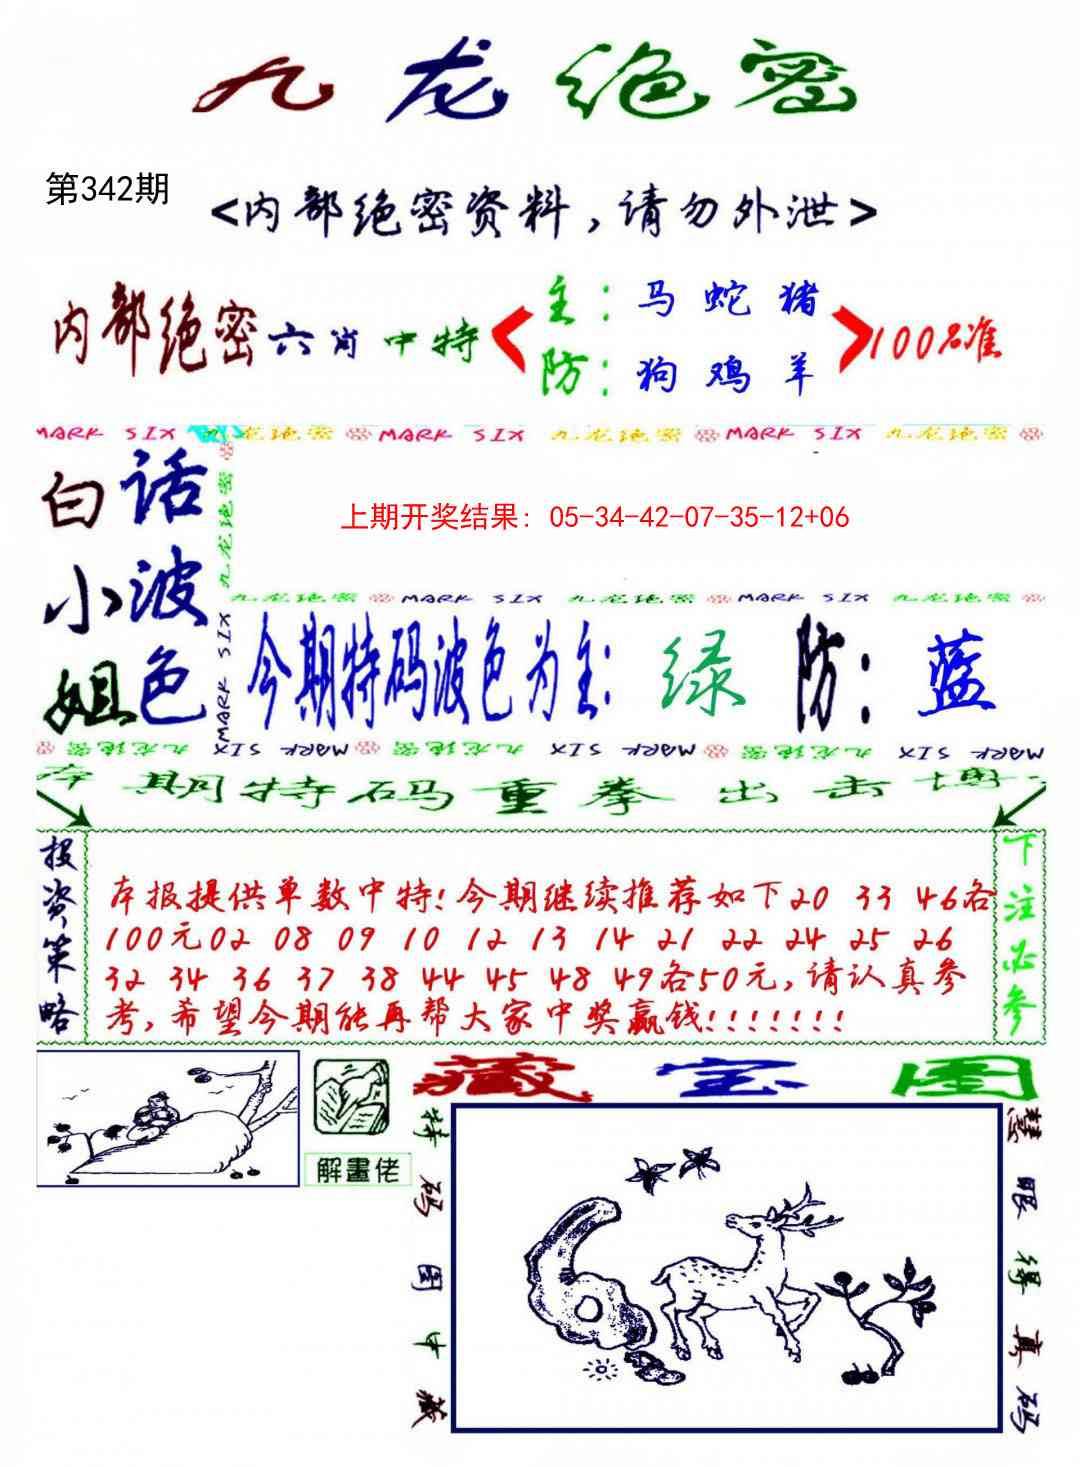 九龙绝密
第342期
<内部绝密资料,请勿外泄>
内部绝密六肖中特
主:马 蛇 猪
防:狗 鸡 羊
100%准
MARK SIX 九龙绝密 MARK SIX 九龙绝密 MARK SIX 九龙绝密
白话
小波
姐色
九龙绝密
MARK SIX
上期开奖结果: 05-34-42-07-35-12+06
九龙绝密 MARK SIX 九龙绝密 MARK SIX 九龙绝密
今期特码波色为主: 绿 防: 蓝
九龙绝密 MARK SIX 九龙绝密 MARK SIX 九龙绝密 MARK SIX
本期特码重拳出击博
投资策略
本报提供单数中特!今期继续推荐如下20 33 46各
100元02 08 09 10 12 13 14 21 22 24 25 26
32 34 36 37 38 44 45 48 49各50元,请认真参
考,希望今期能再帮大家中奖赢钱!!!!!!!
下注必参
解畫佬
藏宝图
特码图中藏
慧眼得真码